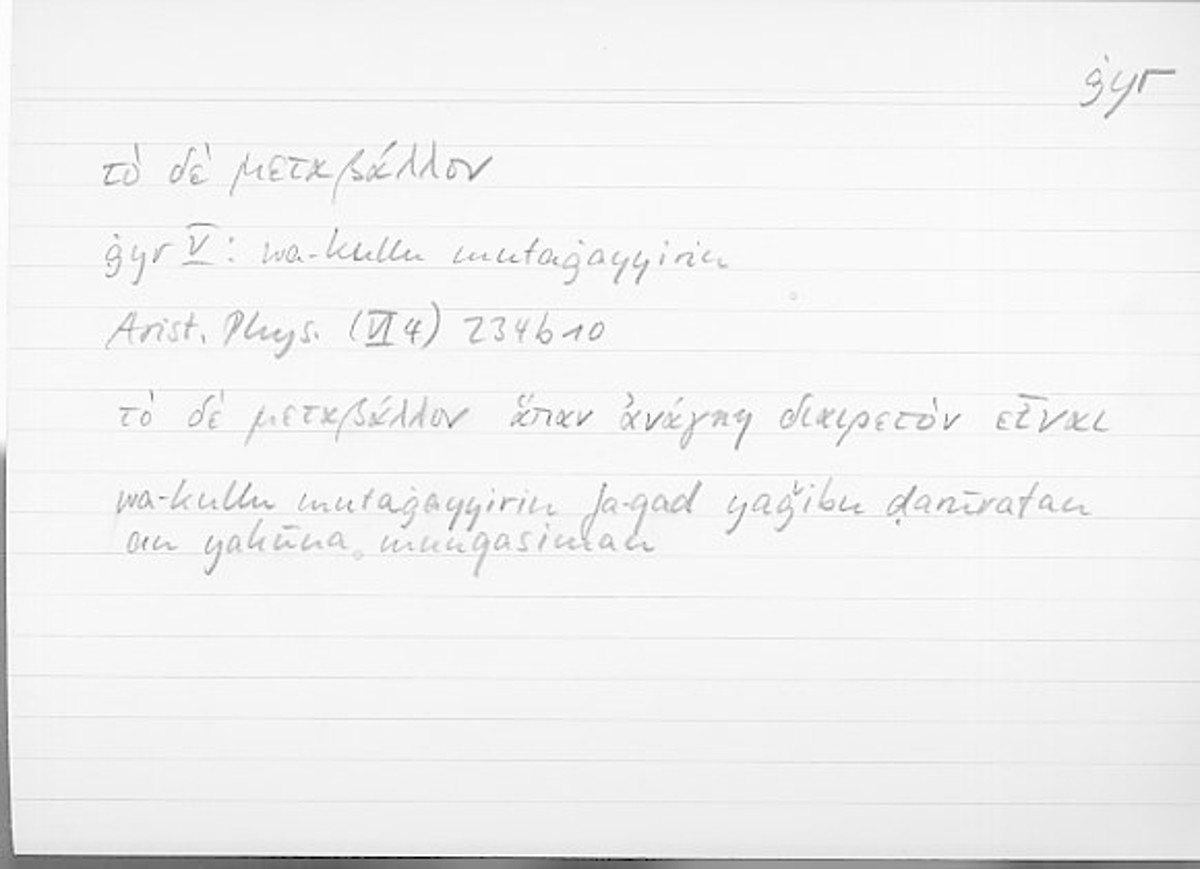 ġyr
τὸ δὲ μεταβάλλον
ġyr V: wa-kullu mutaġayyirin
Arist. Phys. (VI 4) 234b10
τὸ δὲ μεταβάλλον ἅπαν ἀνάγκη διαιρετὸν εἶναι
wa-kullu mutaġayyirin fa-qad yaǧibu ḍarūratan
an yakūna munqasiman